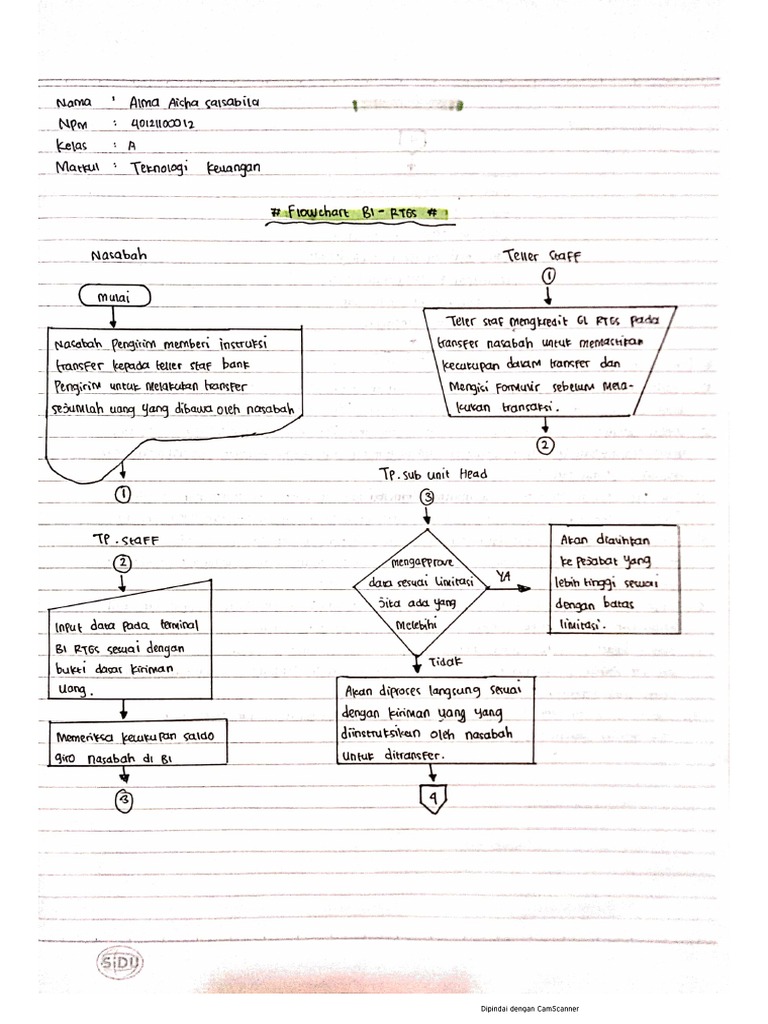 Nama : Alma Aisha Salsabila
NPM : 40121100012
Kelas : A
Matkul : Teknologi Keuangan
# Flowchart BI - RTGS #
Nasabah
mulai
Nasabah Pengirim memberi instruksi
transfer kepada teller staf bank
Pengirim untuk melakukan transfer
sejumlah uang yang dibawa oleh nasabah
1
Teller Staff
1
Teller staf mengkredit GL RTGS pada
transfer nasabah untuk memastikan
kecukupan dalam transfer dan
Mengisi Formulir sebelum mela-
kukan transaksi.
2
TP. Staff
2
Input data pada terminal
BI RTGS sesuai dengan
bukti dasar kiriman
uang.
Memeriksa kecukupan saldo
giro nasabah di BI
3
TP. Sub unit Head
3
mengapprove
data sesuai limitasi
Jika ada yang
Melebihi
YA
Akan diauihkan
ke pejabat yang
lebih tinggi sesuai
dengan batas
limitasi.
Tidak
Akan diproses langsung sesuai
dengan kiriman yang yang
diinstruksikan oleh nasabah
untuk ditransfer.
4
SiDU
Dipindai dengan CamScanner